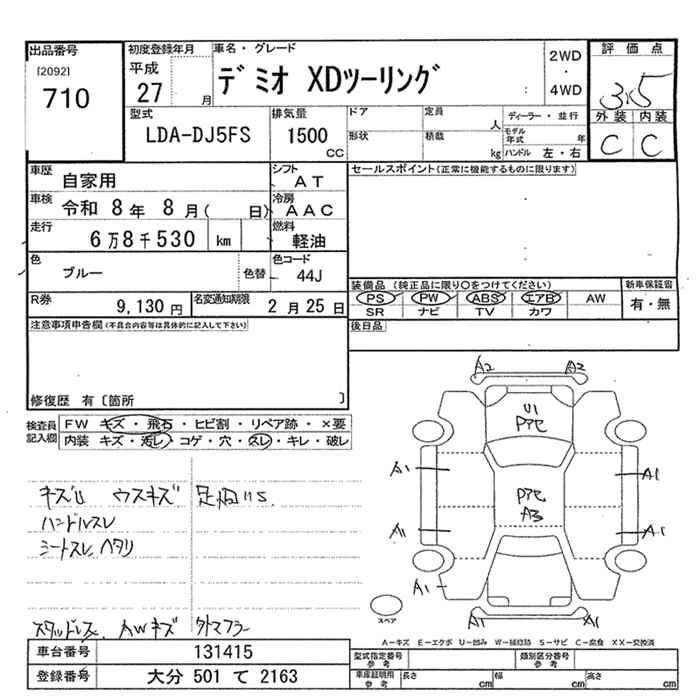 出品番号 初度登録年月 車名・グレード 評価点
[2092] 平成 デミオ XDツーリング 2WD
・
710 27 月 4WD 3.5
型式 排気量 ドア 定員 人 ディーラー・並行 外装 内装
LDA-DJ5FS 1500 CC 形状 積載 kg モデル年式 年 C C
ハンドル 左・右
車歴 自家用 シフト AT セールスポイント(正常に機能するものに限ります)
車検 令和 8年 8月( 日) 冷房 AAC
走行 6万8千530 km 燃料 軽油
色 ブルー 色替 色コード 44J
装備品 (純正品に限り○をつけてください) 新車保証書
R券 9,130円 名変通知期限 2月25日 PS PW ABS エアB AW 有・無
SR ナビ TV カワ
注意事項申告欄(不具合内容等は具体的に記入して下さい) 後日品
修復歴 有〔箇所 〕
検査員記入欄 FW キズ・飛石・ヒビ割・リペア跡・×要
内装 キズ・汚レ・コゲ・穴・スレ・キレ・破レ
A2 A2
U1
A1 A1
A3
A1 A1
A1
A1 A1
キズU ウスキズ
ハンドルスレ
シートスレ ヘタリ
スタッドレス AWキズ 外マフラー
スペア
A-キズ E-エクボ U-凹み W-補修跡 S-サビ C-腐食 XX-交換済
車台番号 131415 型式指定番号 参考 類別区分番号 参考
登録番号 大分 501 て 2163 車庫証明用 参考 長さ cm 幅 cm 高さ cm